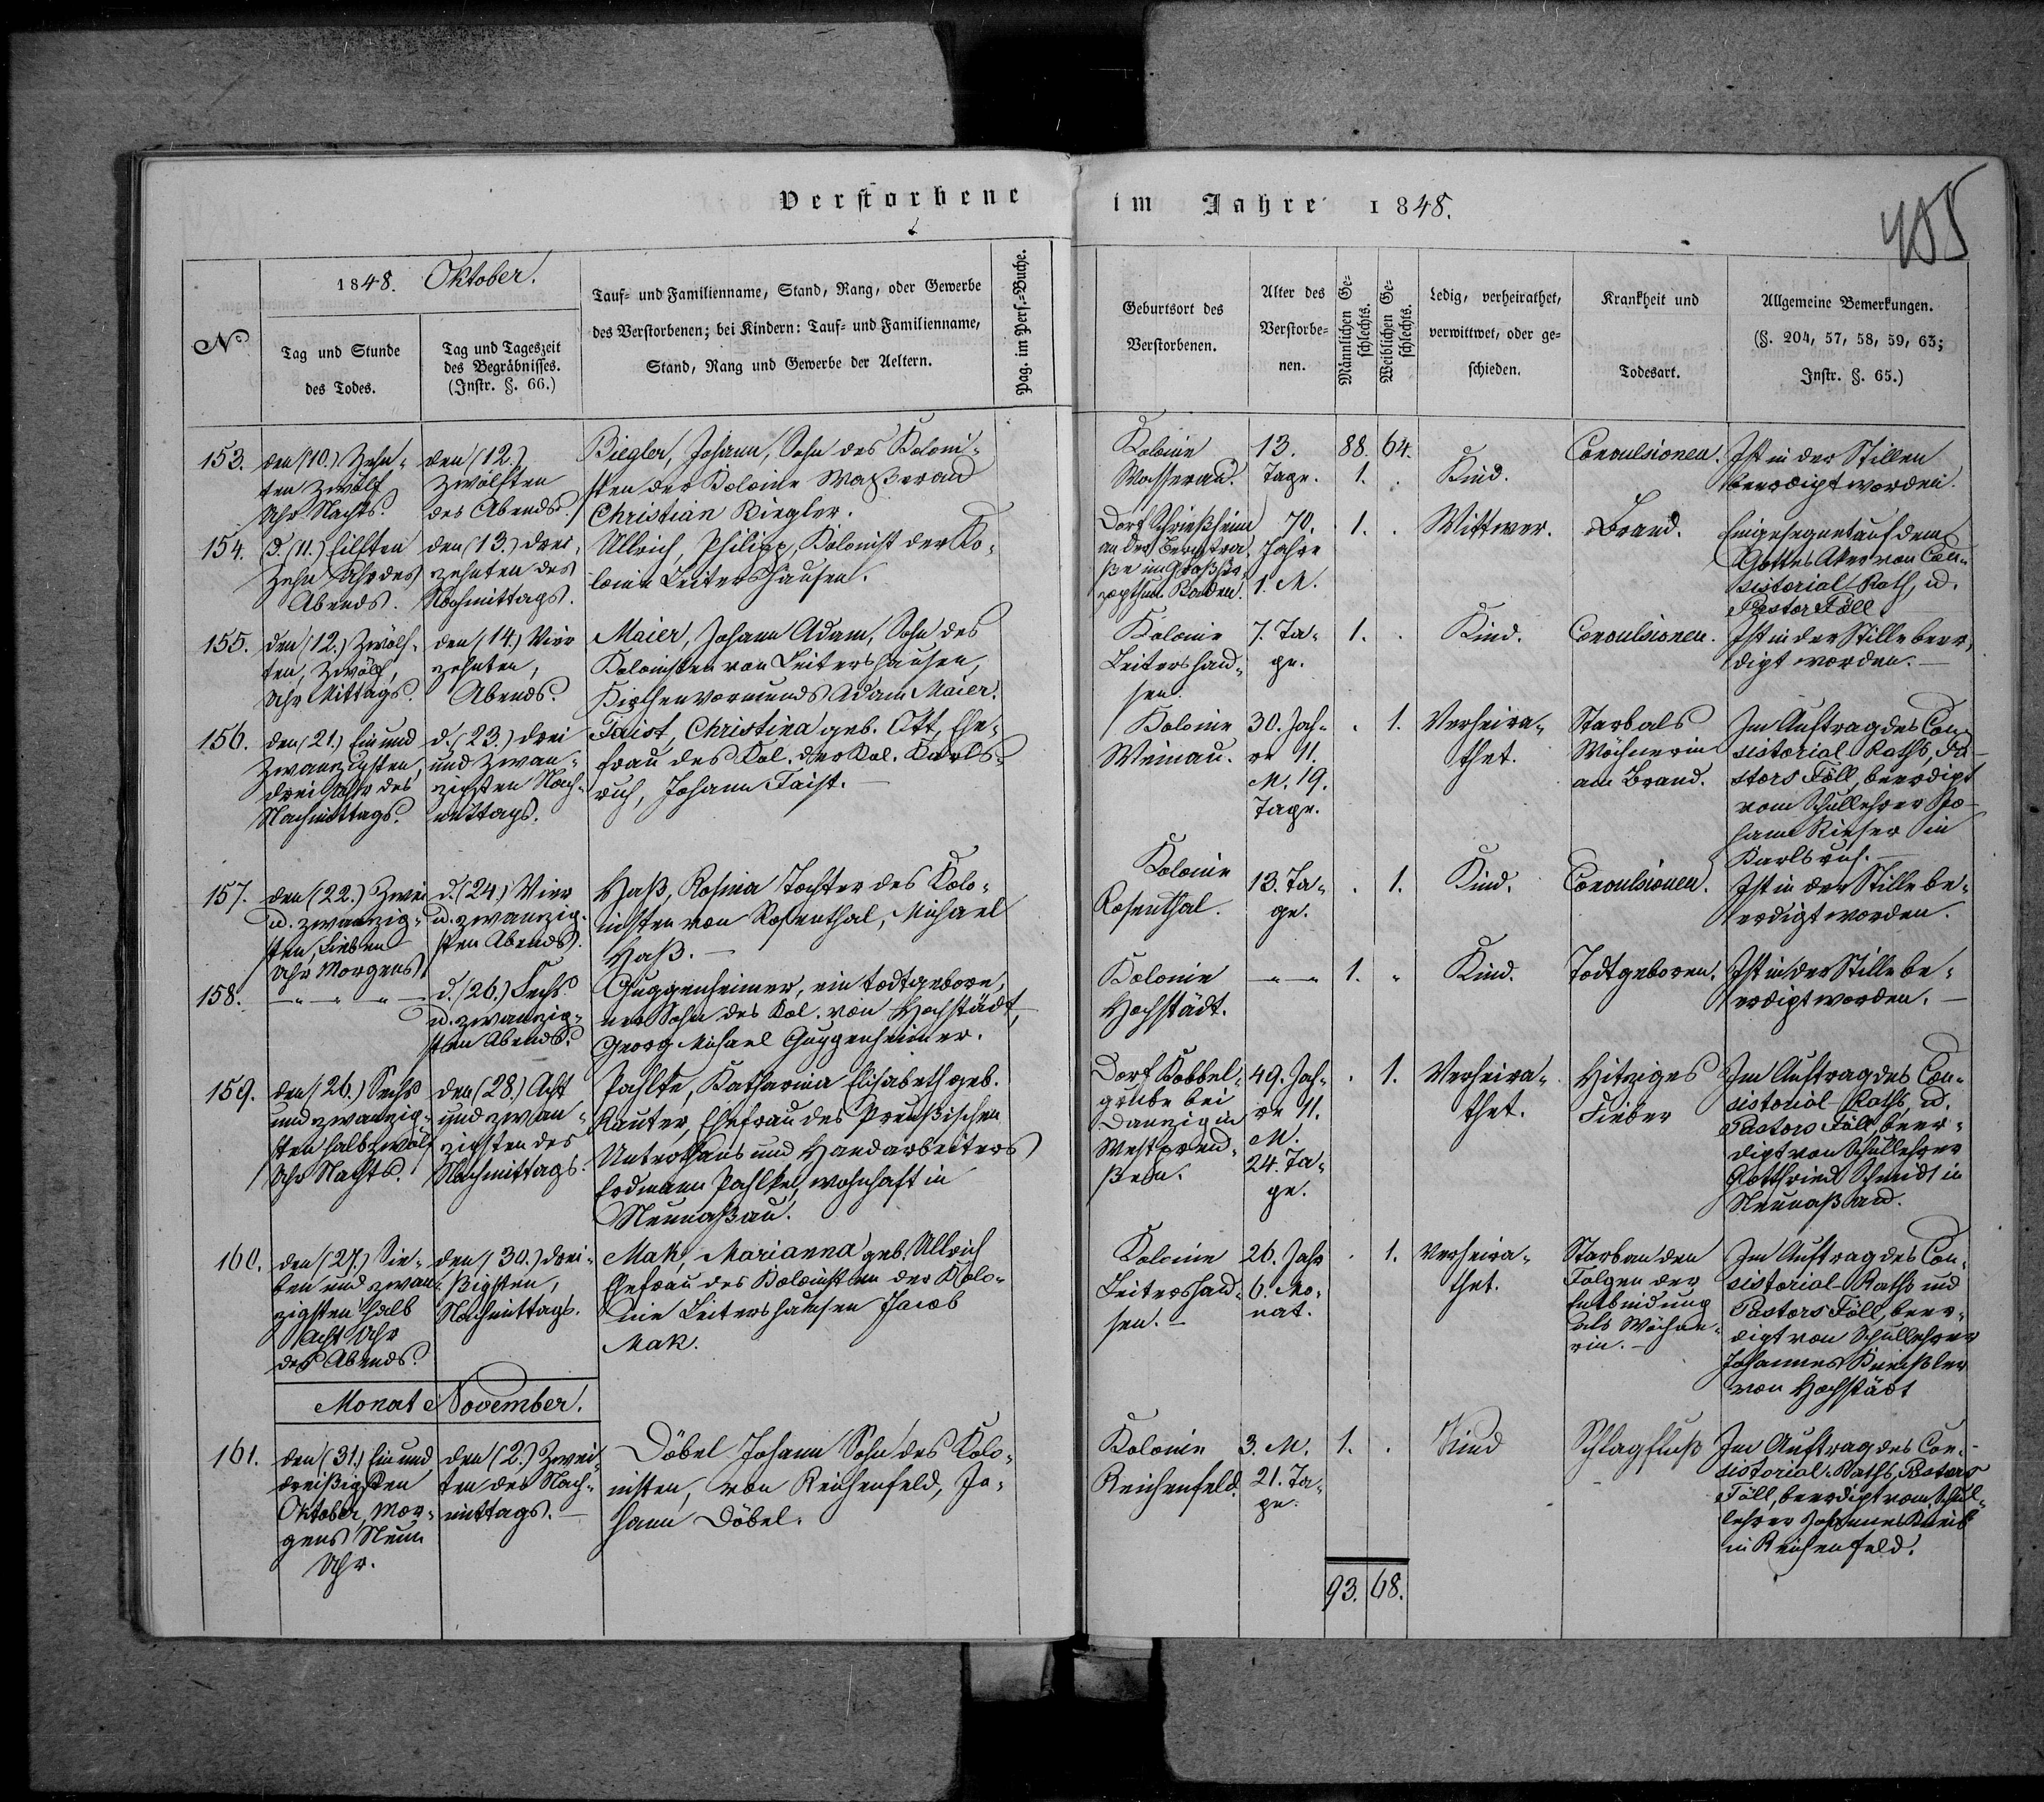 Verstorbene im Jahre 1848.
405
No
1848. Oktober.
Tag und Stunde
des Todes.
Tag und Tageszeit
des Begräbnisses.
(Instr. §. 66.)
Tauf- und Familienname, Stand, Rang, oder Gewerbe
des Verstorbenen; bei Kindern: Tauf- und Familienname,
Stand, Rang und Gewerbe der Aeltern.
Pag. im Pers.-Buche.
Geburtsort des
Verstorbenen.
Alter des
Verstorbe-
nen.
Männlichen Ge-
schlechts.
Weiblichen Ge-
schlechts.
Ledig, verheirathet,
verwittwet, oder ge-
schieden.
Krankheit und
Todesart.
Allgemeine Bemerkungen.
(§. 204, 57, 58, 59, 63;
Instr. §. 65.)
153.
den (10.) Zehn-
ten Zwölf
Uhr Nachts.
den (12.)
Zwölften
des Abends.
Biegler, Johann, Sohn des Koloni-
sten der Kolonie Waßerau
Christian Biegler.
Kolonie
Wasserau.
13.
Tage.
88. 64.
1. .
Kind.
Convulsionen.
Ist in der Stillen
beerdigt worden.
154.
d. (11.) Eilften
Zehn Uhr des
Abends.
den (13.) Drei-
zehnten des
Nachmittags.
Ullrich, Philipp, Kolonist der Ko-
lonie Leitershausen.
Dorf Schrießheim
an der Bergstra-
ße im Großher-
zogthum Baden.
70.
Jahre
1. M.
1. .
Wittwer.
Brand.
Eingesegnet auf dem
Gottes Aker von Con-
sistorial-Rath, u.
Pastor Föll
155.
den (12.) Zwölf-
ten, Zwölf,
Uhr Mittags.
den (14.) Vier
zehnten,
Abends.
Maier, Johann Adam, Sohn des
Kolonisten von Leitershausen,
Kirchenvormunds Adam Maier.
Kolonie
Leitershau-
sen.
7. Ta-
ge.
1. .
Kind.
Convulsionen.
Ist in der Stille beer-
digt worden. —
156.
den (21.) Ein und
Zwanzigsten,
drei Uhr des
Nachmittags.
d. (23.) Drei
und Zwan-
zigsten Nach-
mittags.
Faist, Christina geb. Ott, Ehe-
frau des Kol. der Kol. Karls-
ruh, Johann Faist. —
Kolonie
Weinau.
30. Jah-
re 11.
M. 19.
Tage.
. 1.
Verheira-
thet.
Starb als
Wöchnerin
am Brand.
Im Auftrag des Con-
sistorial-Raths, Pa-
stors Föll, beerdigt
vom Schullehrer Jo-
hann Rieser in
Karlsruh. —
157.
den (22.) Zwei
u. zwanzig-
sten, Sieben
Uhr Morgens.
d. (24.) Vier
u. zwanzig-
sten Abends.
Haß, Rosina Tochter des Kolo-
nisten von Rosenthal, Michael
Haß. —
Kolonie
Rosenthal.
13. Ta-
ge.
. 1.
Kind.
Convulsionen.
Ist in der Stille be-
erdigt worden.
158.
— „ — „ —
d. (26.) Sechs
u. zwanzig-
sten Abends.
Guggenheimer, ein todtgebore-
ner Sohn des Kol. von Hochstädt,
Georg Michael Guggenheimer.
Kolonie
Hochstädt.
— „ —
1. „
Kind.
Todtgeboren.
Ist in der Stille be-
erdigt worden. —
159.
den (26.) Sechs
und zwanzig-
sten halb zwölf
Uhr Nachts.
den (28.) Acht
und zwan-
zigsten des
Nachmittags.
Pahlke, Katharina Elisabeth geb.
Rauter, Ehefrau des Preußischen
Unterthans und Handarbeiters
Erdmann Pahlke, wohnhaft in
Neunaßau.
Dorf Kobbel-
grube bei
Danzig in
Westpreu-
ßen.
49. Jah-
re 11.
M.
24. Ta-
ge.
. 1.
Verheira-
thet.
Hitziges
Fieber
Im Auftrag des Con-
sistorial-Raths, u.
Pastors Föll, beer-
digt von Schullehrer
Gottfried Schmidt in
Neunaßau.
160.
den (27.) Sie-
ben und zwan-
zigsten halb
Acht Uhr
des Abends.
den (30.) Drei-
ßigsten,
Nachmittags.
Mak, Marianna geb. Ullrich
Ehefrau des Kolonisten der Kolo-
nie Leitershausen Jacob
Mak.
Kolonie
Leitershau-
sen. —
26. Jahr
6. Mo-
nat.
. 1.
Verheira-
thet.
Starb an den
Folgen der
Entbindung
als Wöchne-
rin. —
Im Auftrag des Con-
sistorial-Raths und
Pastors Föll, beer-
digt von Schullehrer
Johannes
von Hochstädt
Monat November.
161.
den (31.) Ein und
dreißigsten
Oktober, Mor-
gens Neun
Uhr.
den (2.) Zwei-
ten des Nach-
mittags. —
Döbel Johann Sohn des Kolo-
nisten, von Reichenfeld, Jo-
hann Döbel.
Kolonie
Reichenfeld.
3. M.
21. Ta-
ge.
1. .
Kind
Schlagfluß
Im Auftrag des Con-
sistorial-Raths, Pastors
Föll, beerdigt vom Schul-
lehrer Johannes
in Reichenfeld.
93. 68.